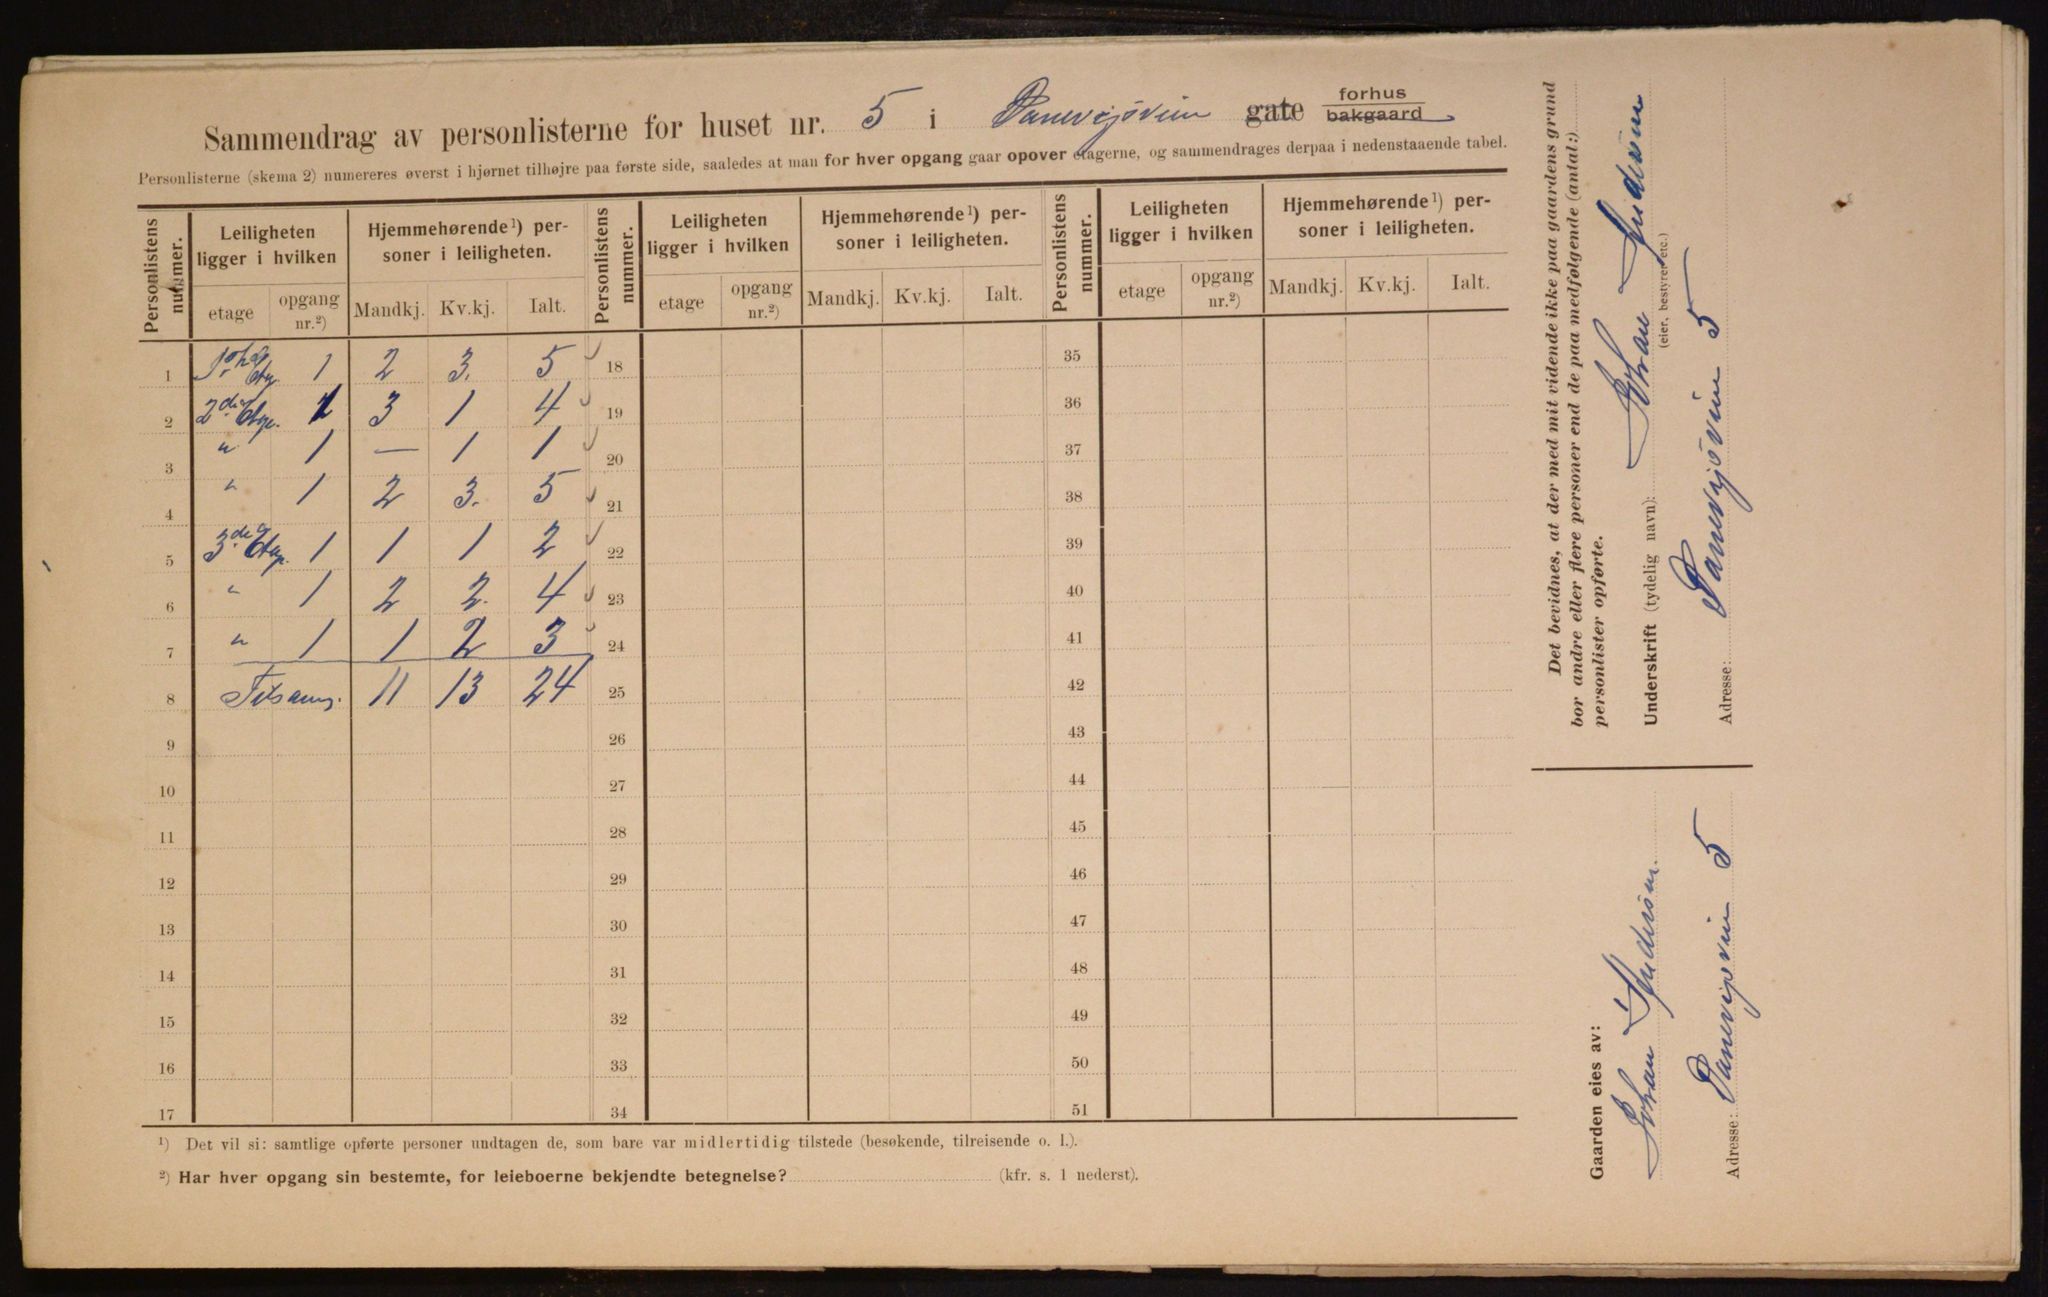 Sammendrag av personlisterne for huset nr. 5 i gate forhus bakgaard
Personlisterne (skema 2) numereres øverst i hjørnet tilhøjre paa første side, saaledes at man for hver opgang gaar opover etagerne, og sammendrages derpaa i nedenstaaende tabel.
Personlistens nummer. Leiligheten ligger i hvilken Hjemmehørende¹) personer i leiligheten. Personlistens nummer. Leiligheten ligger i hvilken Hjemmehørende¹) personer i leiligheten. Personlistens nummer. Leiligheten ligger i hvilken Hjemmehørende¹) personer i leiligheten.
etage opgang nr.²) Mandkj. Kv.kj. Ialt. etage opgang nr.²) Mandkj. Kv.kj. Ialt. etage opgang nr.²) Mandkj. Kv.kj. Ialt.
1 1 2 3. 5 18 35
2 2den Etag. 1 3 1 4 19 36
3 " 1 — 1 1 20 37
4 " 1 2 3. 5 21 38
5 3die Etag. 1 1 1 2 22 39
6 " 1 2 2. 4 23 40
7 " 1 1 2 3 24 41
8 Tilsam. 11 13 24 25 42
9 26 43
10 27 44
11 28 45
12 29 46
13 30 47
14 31 48
15 32 49
16 33 50
17 34 51
¹) Det vil si: samtlige opførte personer undtagen de, som bare var midlertidig tilstede (besøkende, tilreisende o. l.).
²) Har hver opgang sin bestemte, for leieboerne bekjendte betegnelse? (kfr. s. 1 nederst).
Det bevidnes, at der med mit vidende ikke paa gaardens grund
bor andre eller flere personer end de paa medfølgende (antal:)
personlister opførte.
Underskrift (tydelig navn): Johan Andersen
(eier, bestyrer etc.)
Adresse: 5
Gaarden eies av:
Johan Andersen.
Adresse: 5